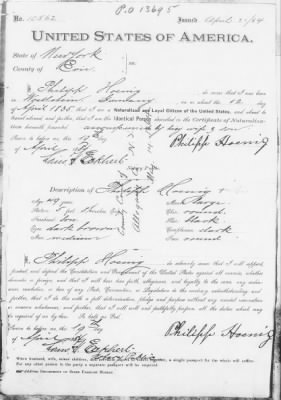 P.O 13695
No. 10562 Issued April 21/84
UNITED STATES OF AMERICA.
State of New York
County of Erie
I, Philipp Hoenig, do swear that I was born
in Germany on or about the 12
day of April 1835; that I am a Naturalized and Loyal Citizen of the United States, about to
travel abroad; and further, that I am the Identical Person described in the Certificate of Naturalization
herewith presented accompanied by my wife & son
Sworn to before me, this 19th Philipp Hoenig
day of April
Description of Philipp Hoenig
Age: 49 years
Mouth: large
Stature: 5 feet inches Eng.
Chin: round
Hair: black
Eyes: dark brown
Complexion: dark
Nose: medium
Face: round
I, Philipp Hoenig, do solemnly swear that I will support,
protect, and defend the Constitution and Government of the United States against all enemies, whether
domestic or foreign; and that I will bear true faith, allegiance, and loyalty to the same, any ordinance,
resolution, or law of any State, Convention, or Legislature to the contrary notwithstanding; and
further, that I do this with a full determination, pledge, and purpose, without any mental reservation
or evasion whatsoever; and further, that I will well and faithfully perform all the duties which may
be required of me by law. So help me God.
Sworn to before me, this 19th
day of April Philipp Hoenig
When husband, wife, minor children, a single passport for the whole will suffice.
For any other person in the party a separate passport will be required.